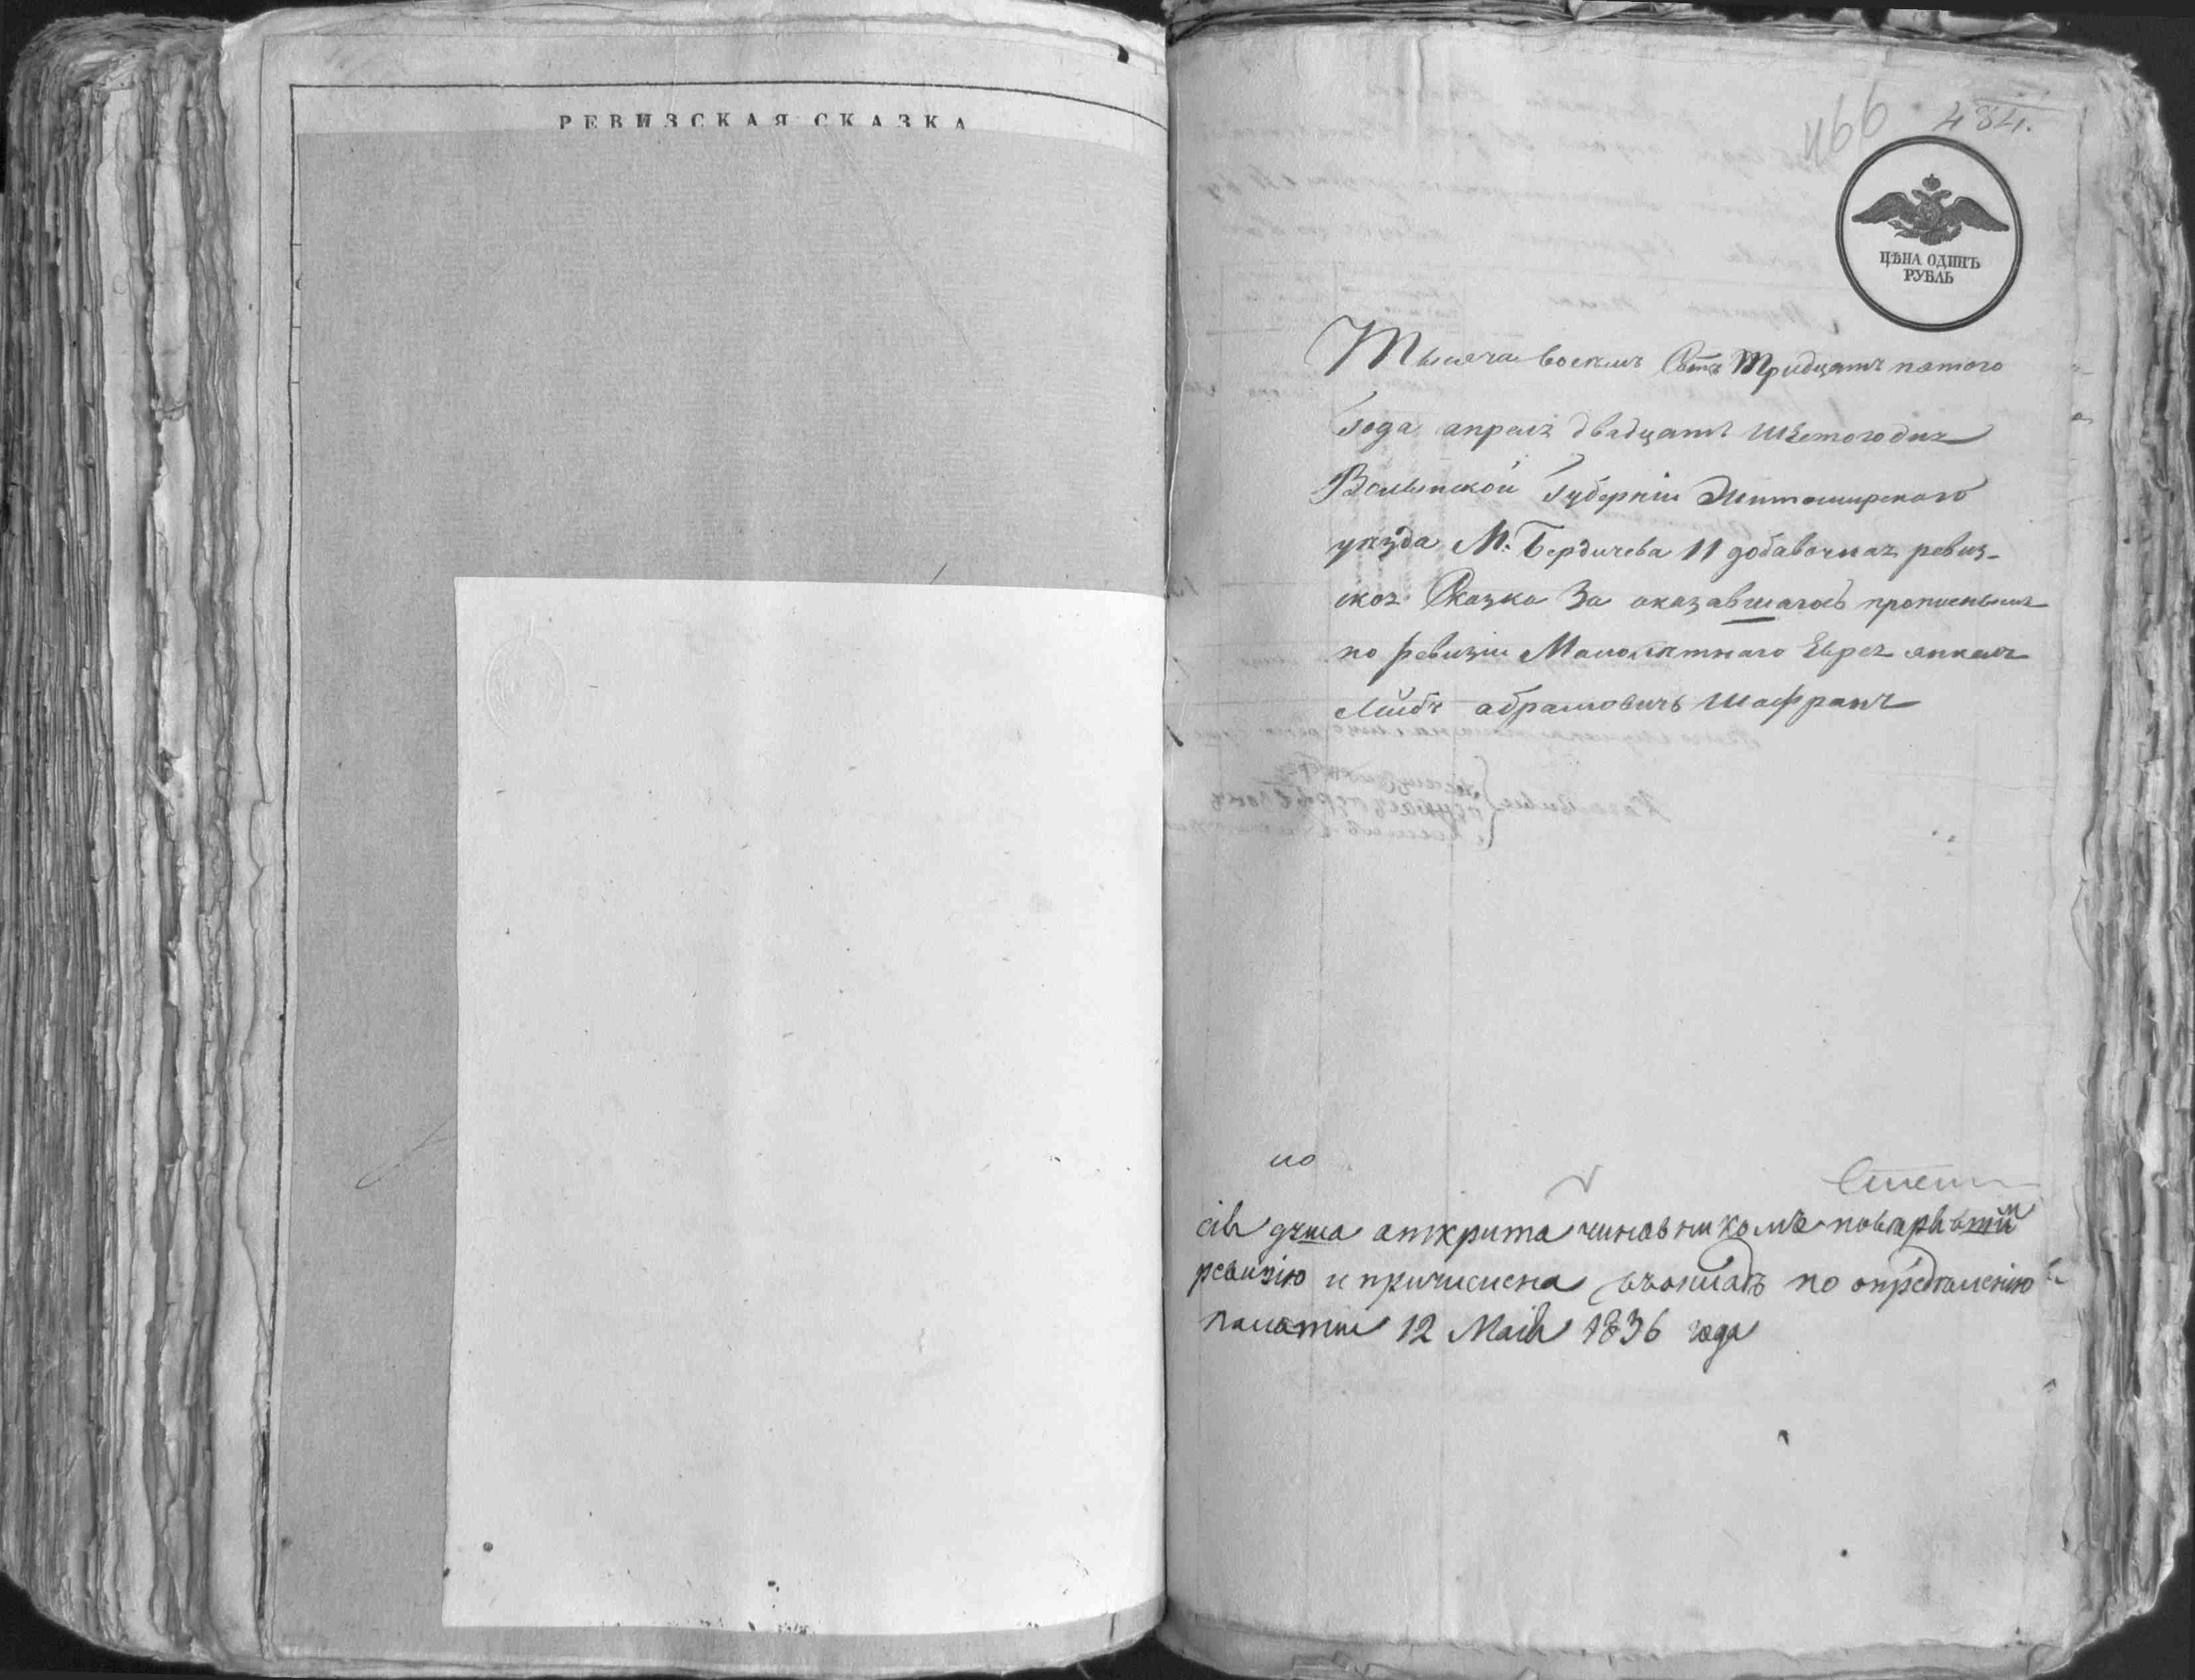 РЕВИЗСКАЯ СКАЗКА
466 484.
ЦѢНА ОДИНЪ
РУБЛЬ
Тысяча восемь Сотъ Тридцать пятого
Года апреля двадцать шестого дня
Волынской Губерніи Житомирского
уѣзда М: Бердичева 11 добавочная ревиз-
ская Сказка За оказавшагось прописнымъ
по ревизіи Малолѣтнаго Еврея янкеля
Лейбы абрамовичъ Шафрана
но
сія душа аткрита чиновникомъ
ревизію и причислена въокладъ по опредѣленію
палати 12 Маія 1836 года